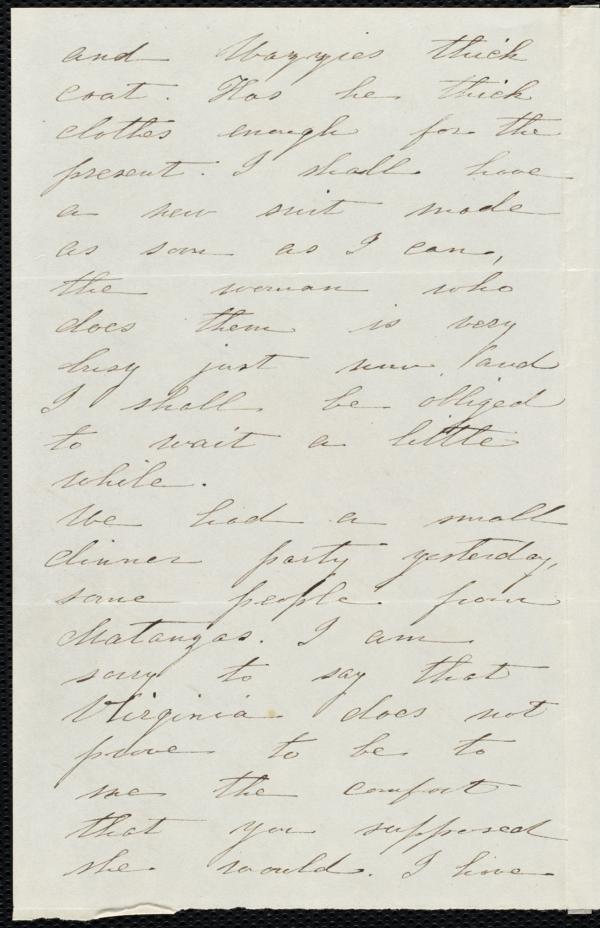 and Wayyies thick
coat. Has he thick
clothes enough for the
present. I shall have
a new suit made
as soon as I can,
the woman who
does them is very
busy just now, and
I shall be obliged
to wait a little
while.
We had a small
dinner party yesterday,
some people from
Matanzas. I am
sorry to say that
Virginia does not
prove to be to
me the comfort
that you supposed
she would. I have